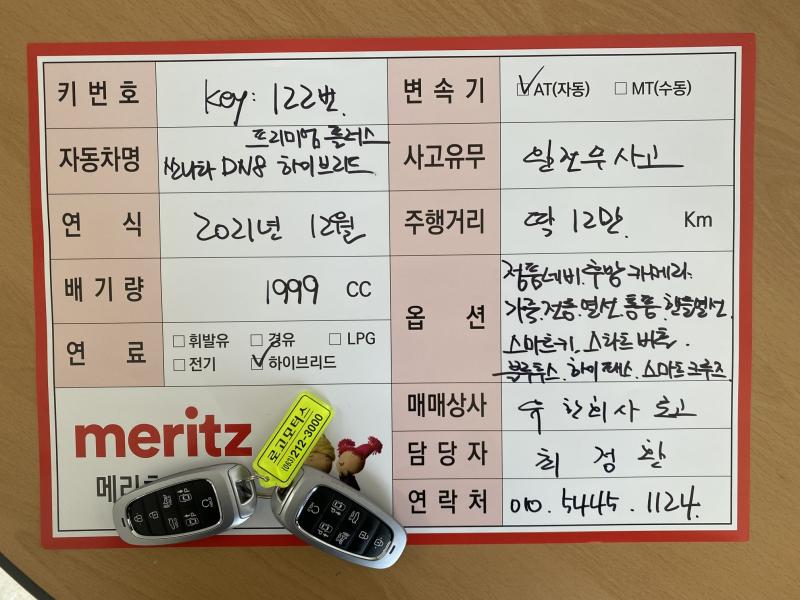 키 번 호 Key: 122번.
변 속 기 ☑ AT(자동) ☐ MT(수동)
자동차명 프리미엄 플러스
쏘나타 DN8 하이브리드
사고유무 일전무사고
연 식 2021년 12월
주행거리 딱 12만. Km
배 기 량 1999 CC
옵 션 정품네비.후방카메라.
가죽.전동.열선.통풍.핸들열선.
스마트키.스타트버튼.
블루투스.하이패스.스마트크루즈.
연 료 ☐ 휘발유 ☐ 경유 ☐ LPG
☐ 전기 ☑ 하이브리드
매매상사 유한회사 로고
담 당 자 최 정
연 락 처 010.5445.1124.
meritz
메리
로고모터스
(063)212-3000